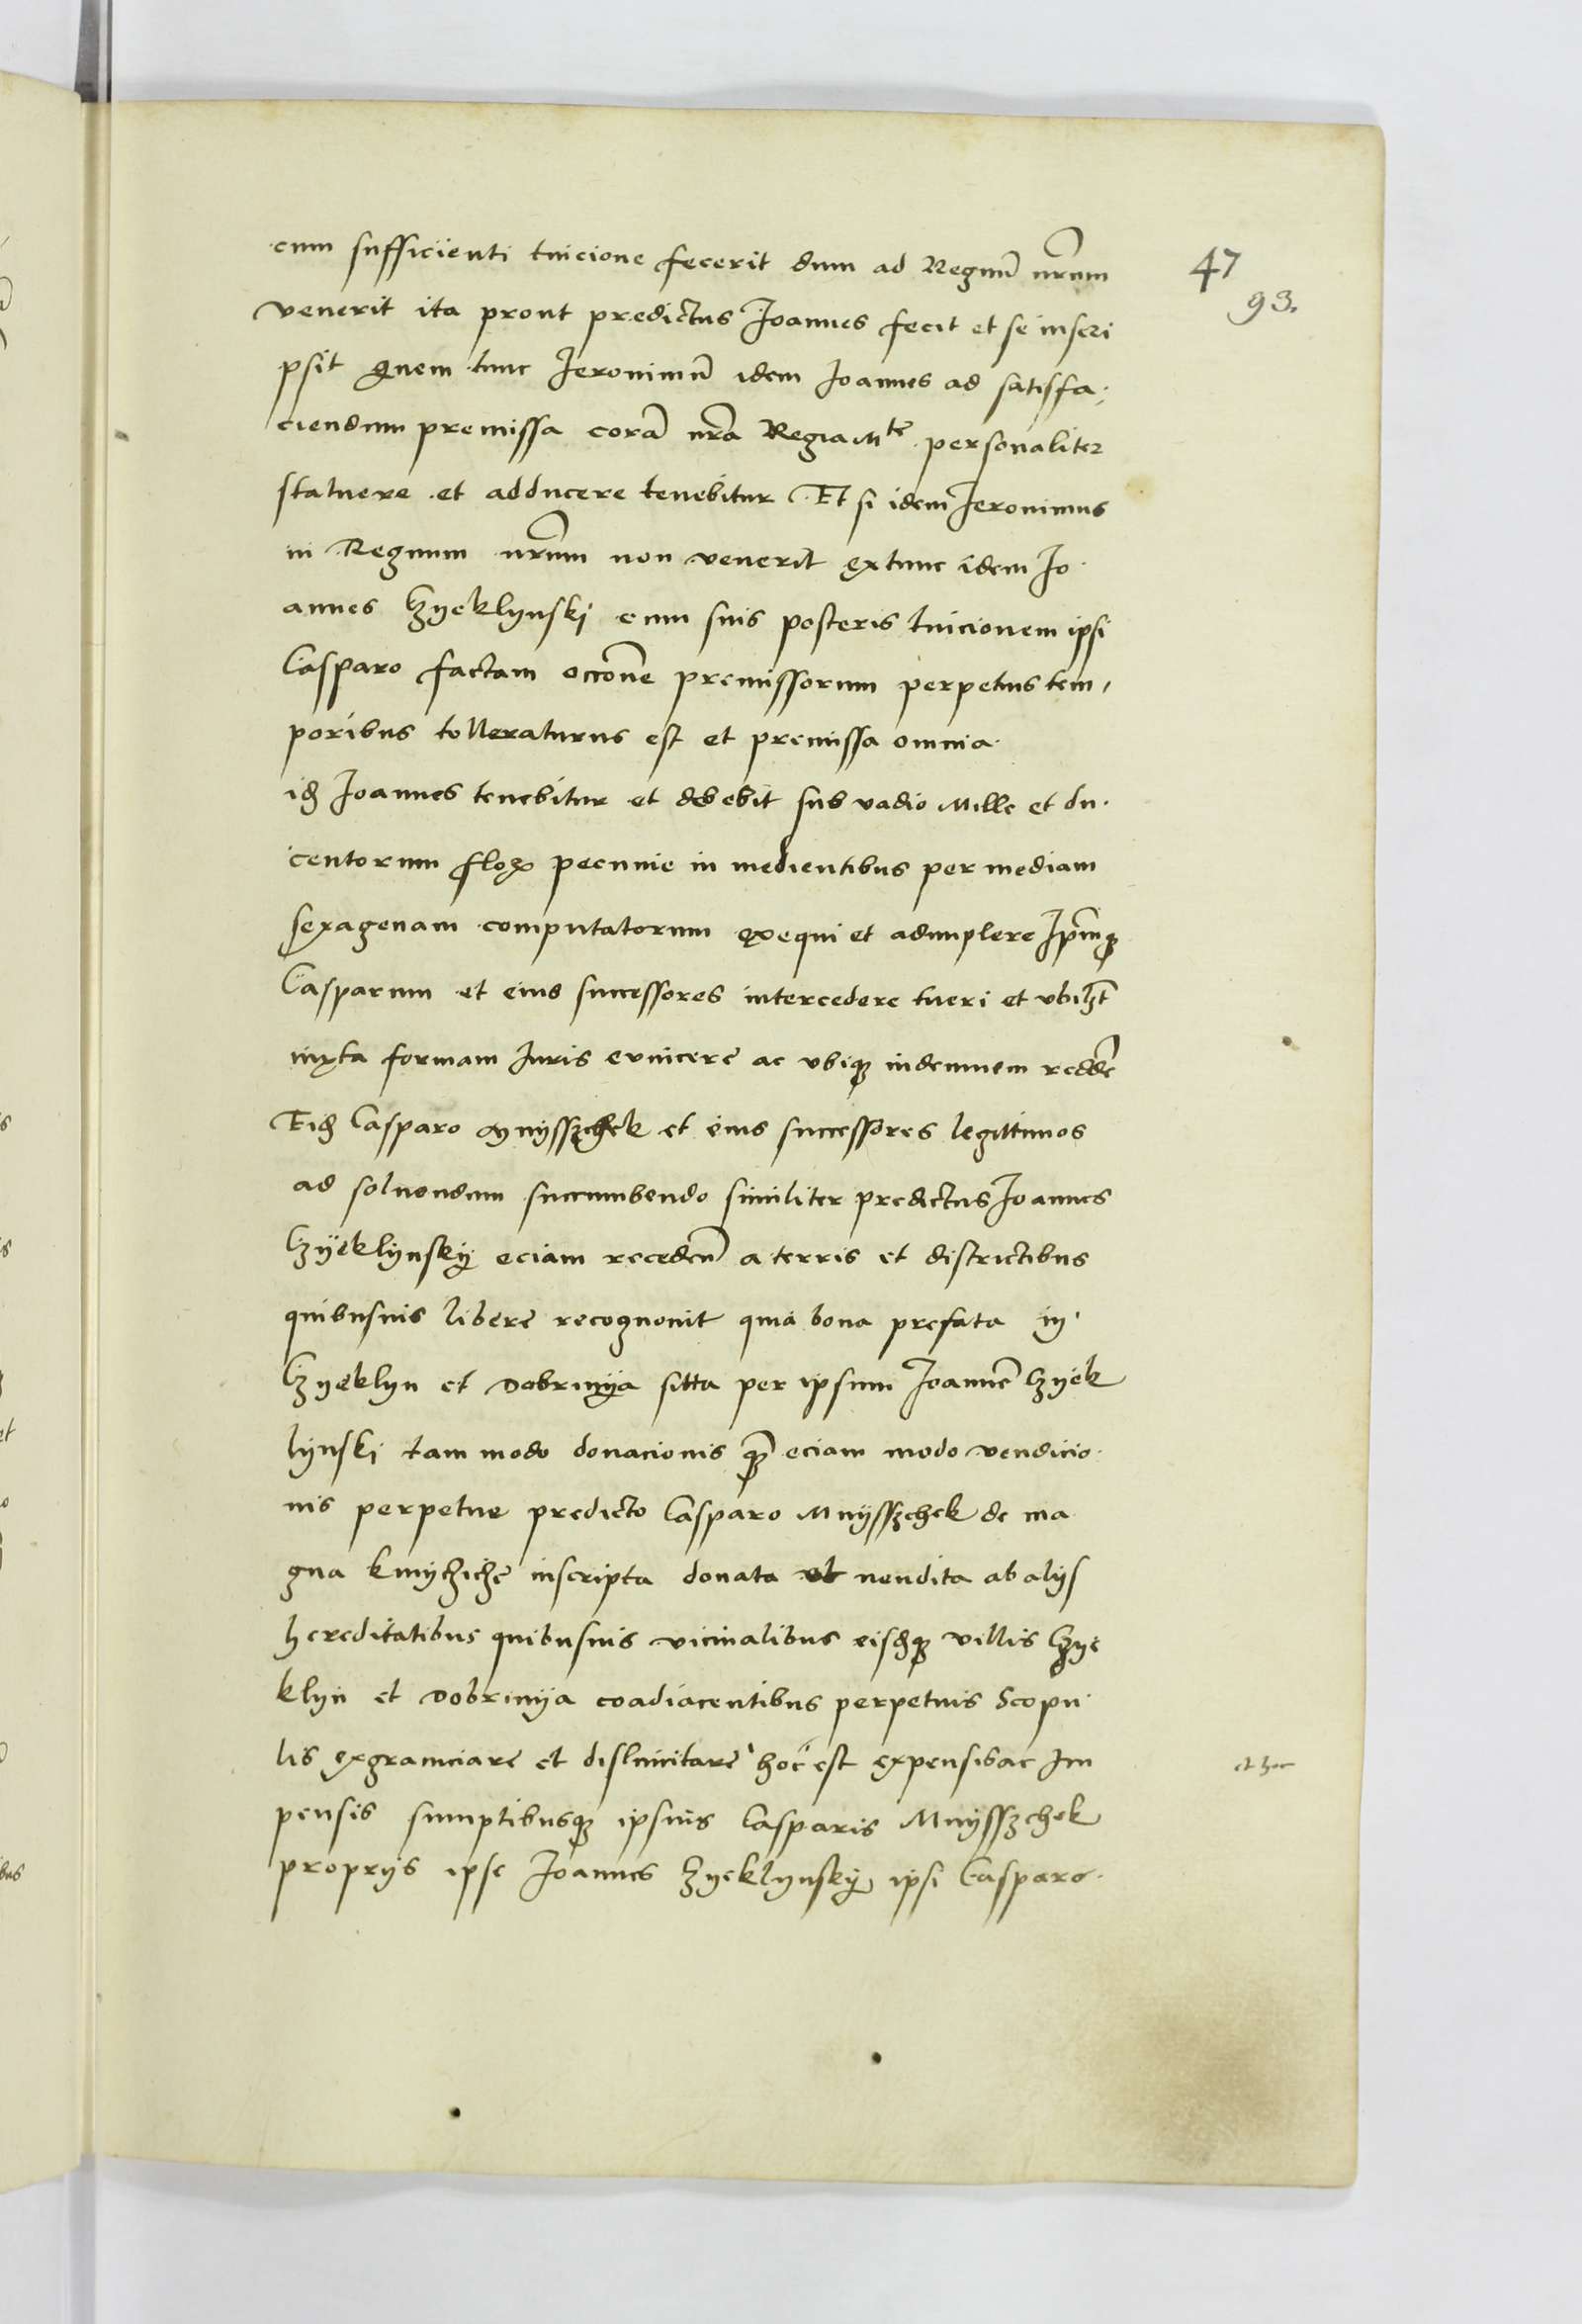 cum sufficienti tuicione fecerit dum ad Regnũ nr̃um
venerit ita prout predictus Joannes fecit et se inscri
psit quem tunc Jeronimũ idem Joannes ad satisfa,
ciendum premissa corã nr̃a Regia Mte personaliter
statuere et adducere tenebitur Et si idem Jeronimus
in Regnum nr̃um non venerit extunc idem Jo
annes Czyeklynski cum suis posteris tuicionem ipsi
Casparo factam occõne premissorum perpetuis tem,
poribus tolleraturus est et premissa omnia
idẽ Joannes tenebitur et debebit sub vadio Mille et du
centorum flor pecunie in medientibus per mediam
sexagenam computatorum exequi et adimplere Ipm̃qꝫ
Casparum et eius successores intercedere tueri et
iuxta formam Juris evincere ac vbiqꝫ indemnem reddẽ
Eidẽ Casparo Mnysszchek et eius successores legittimos
ad soluendum succumbendo similiter predictus Joannes
Czyeklynsky eciam recedẽn a terris et districtibus
quibusuis libere recognouit quia bona prefata in
Czyeklyn et Dobrinya sitta per ipsum Joannẽ Czyek
lynski tam modo donacionis qꝫ̃ eciam modo vendicio
nis perpetue predicto Casparo Mnysszchek de ma
gna kunychiche inscripta donata et uendita ab alijs
hereditatibus quibusuis vicinalibus eisdẽqꝫ villis Czye
klyn et Dobrinya coadiacentibus perpetuis Scopu
lis exgraniciare et dislimitare hoc est expensis ac Im
pensis sumptibusqꝫ ipsius Casparis Mnysszchek
proprijs ipse Joannes Czyeklynsky ipsi Casparo
47
93.
et hoc